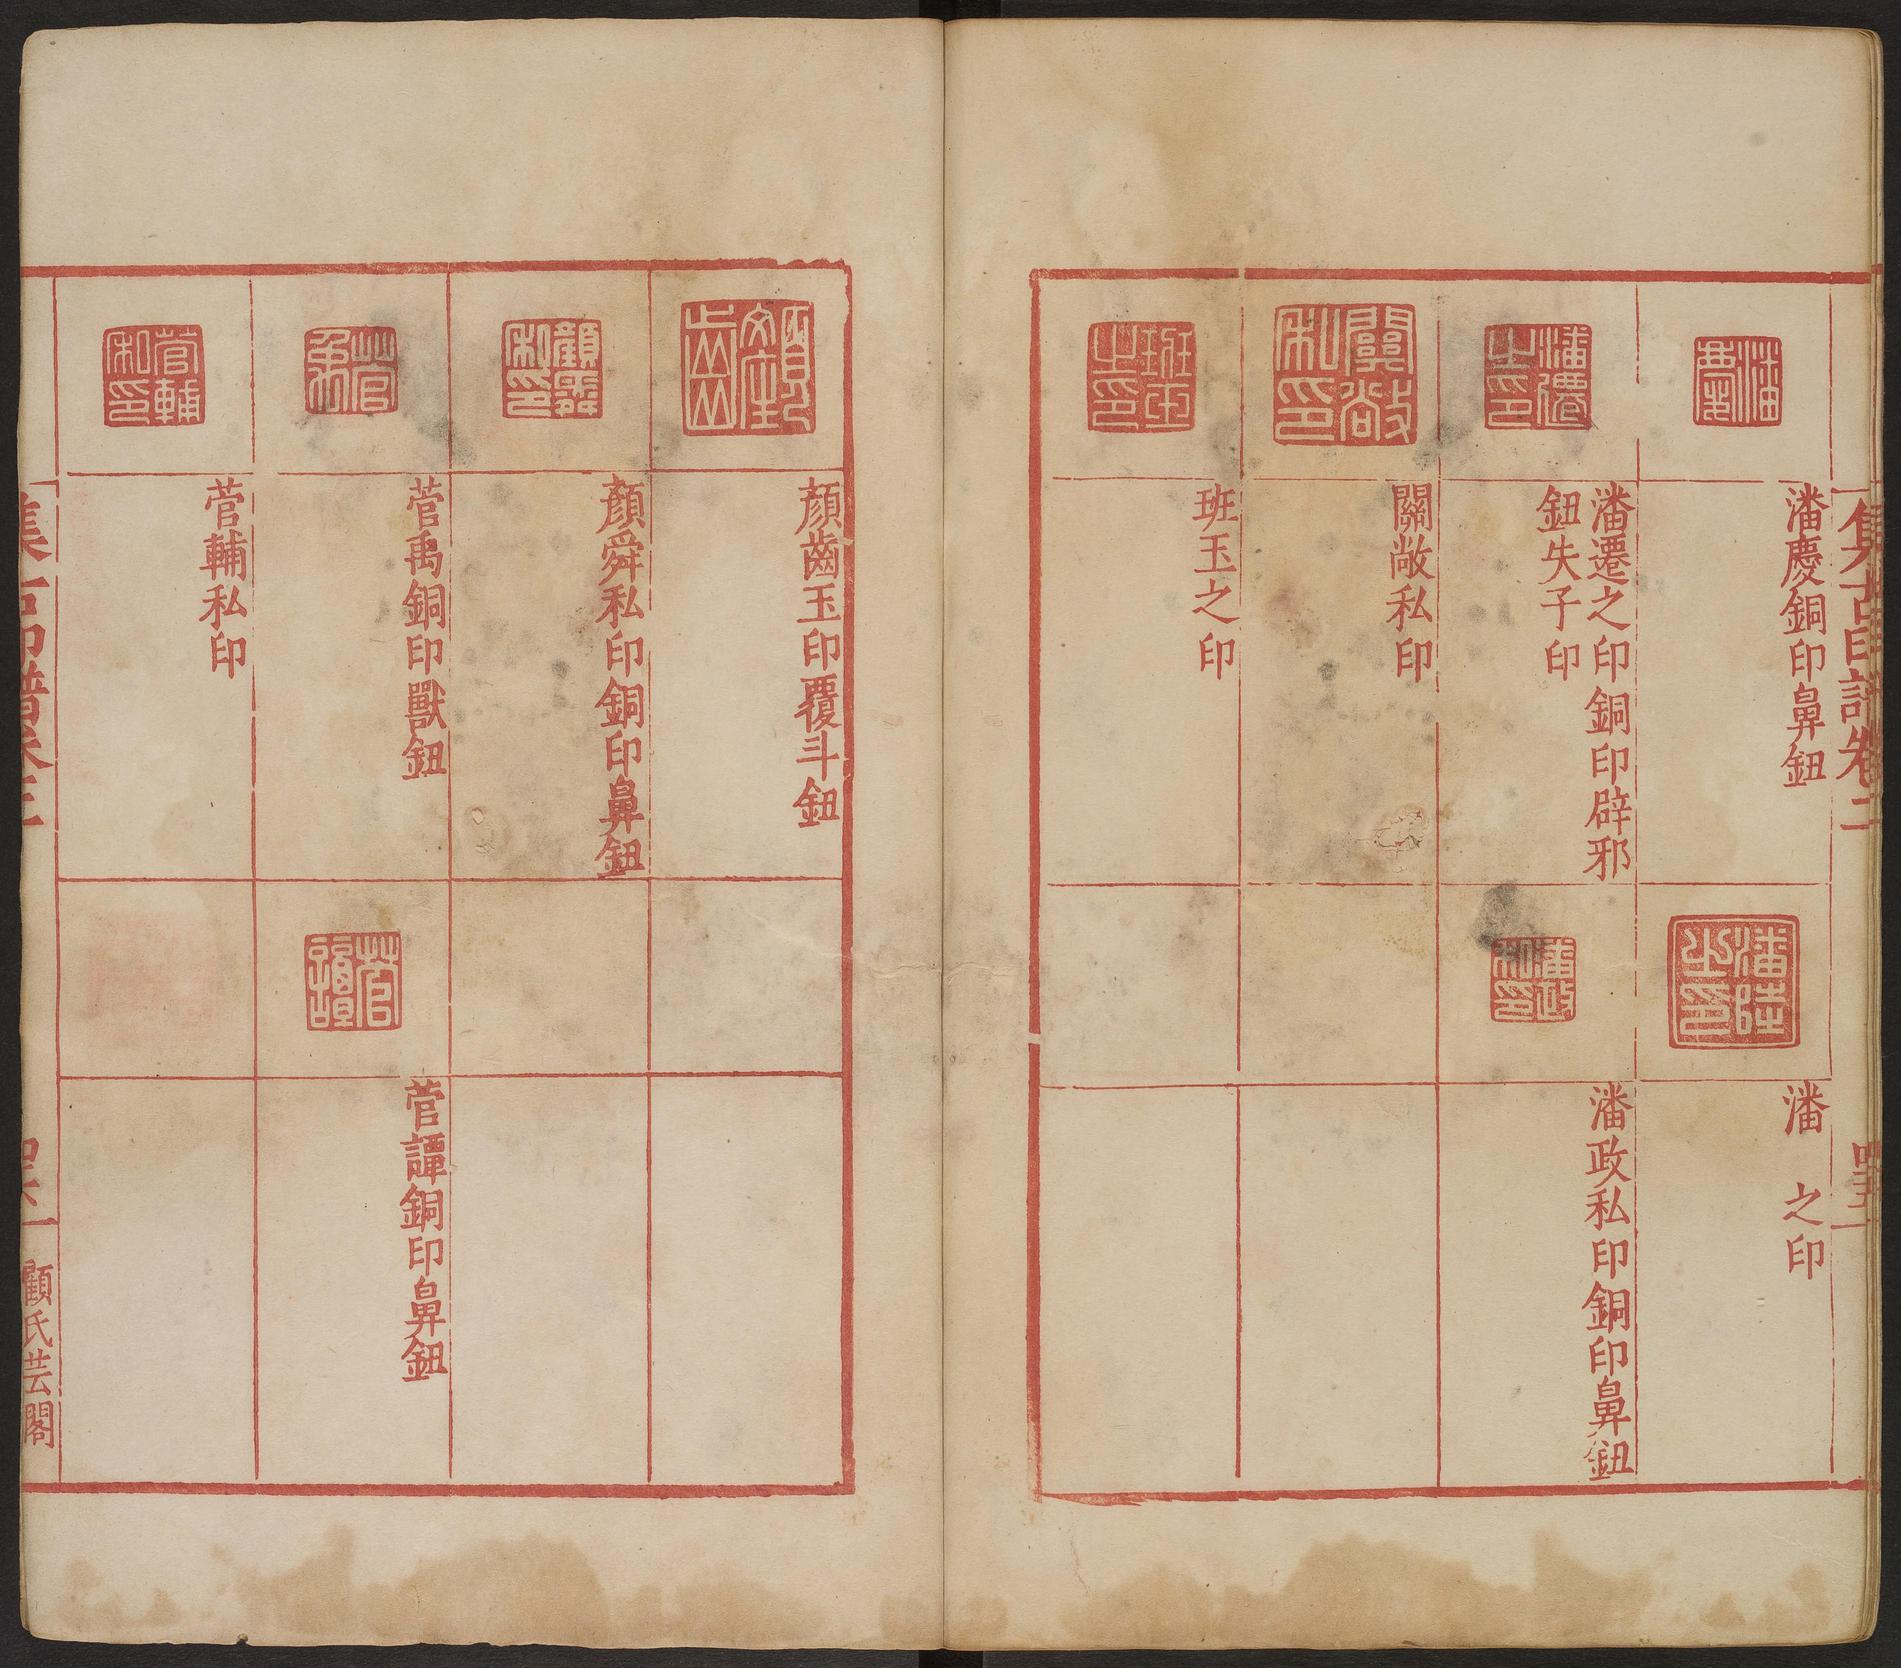 集古印譜卷二
潘慶銅印鼻鈕
潘 之印
潘遷之印銅印辟邪
鈕失子印
潘政私印銅印鼻鈕
關敞私印
班玉之印
顏齒玉印覆斗鈕
顏舜私印銅印鼻鈕
菅禹銅印獸鈕
菅譚銅印鼻鈕
菅輔私印
集古印譜卷三
顧氏芸閣